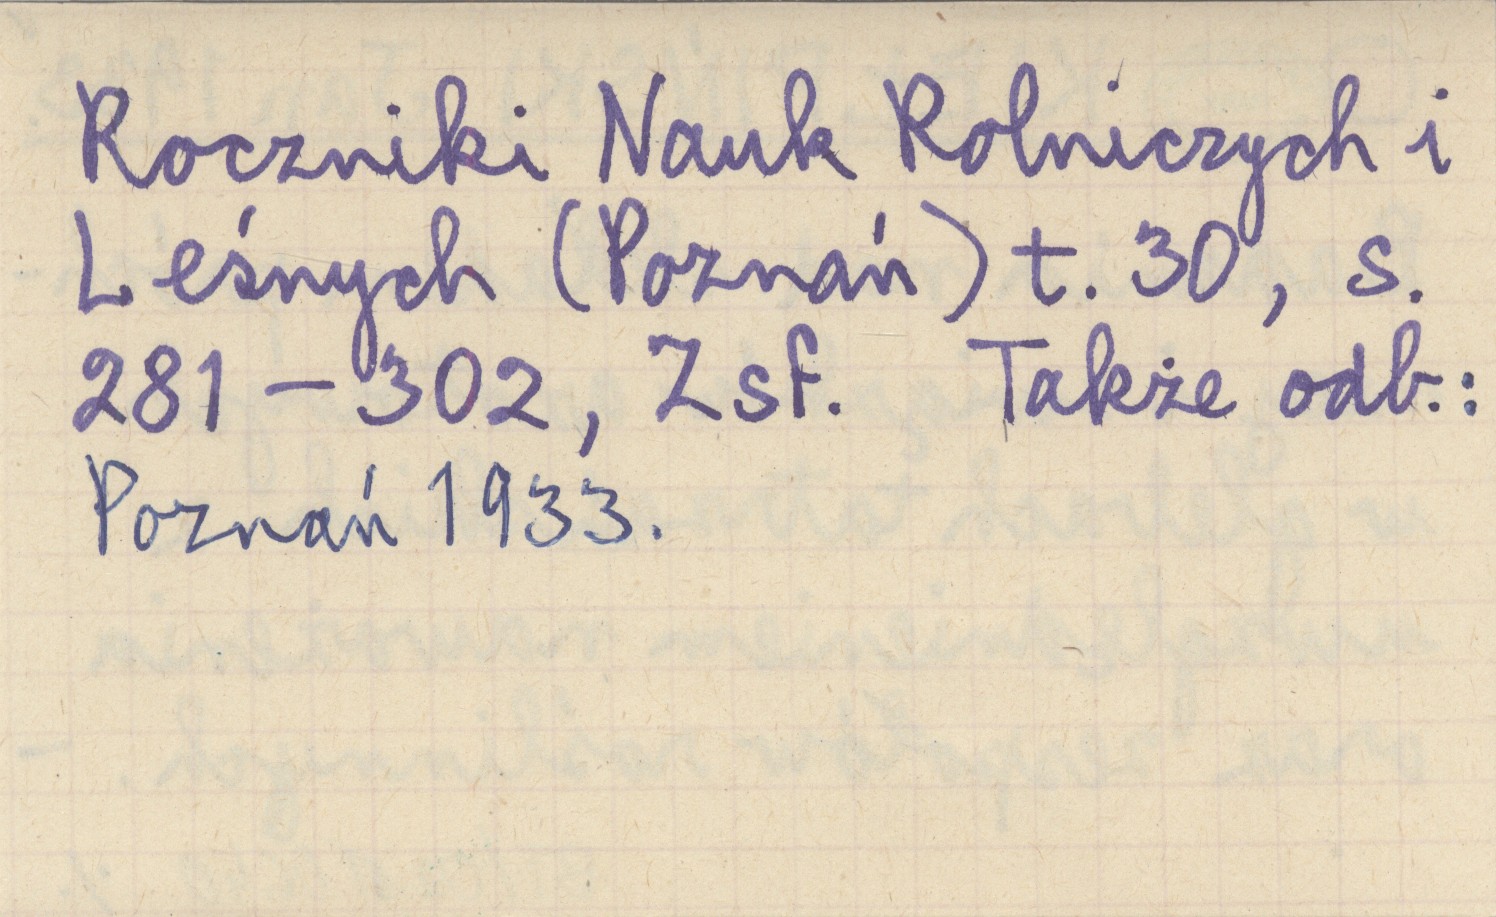 Roczniki Nauk Rolniczych i
Leśnych (Poznań) t. 30, s.
281 – 302, Zsf. Także odb.:
Poznań 1933.